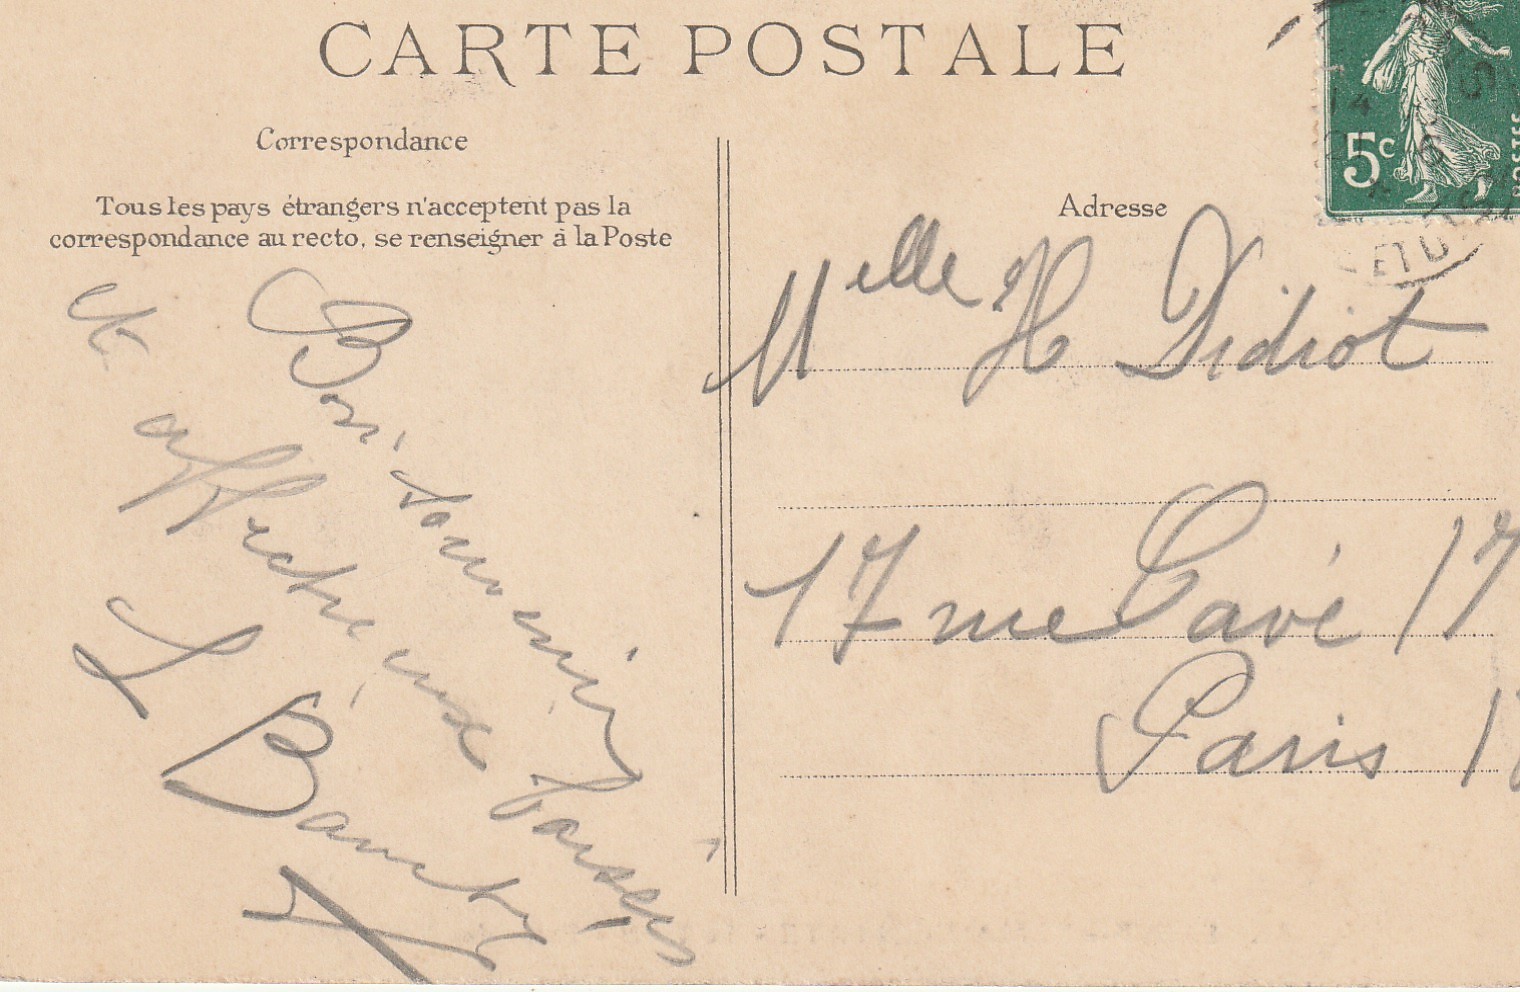 CARTE POSTALE
Correspondance
Tous les pays étrangers n'acceptent pas la
correspondance au recto, se renseigner à la Poste
Bon souvenir
et affectueux baisers
L
Adresse
Melle H Didiot
17 rue Cavé 17
Paris
5c
POSTES
14